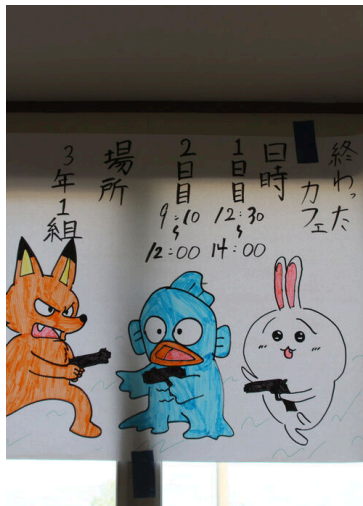 終わった
カフェ
日時
1日目
12:30
〜
14:00
2日目
9:10
〜
12:00
場所
3年1組